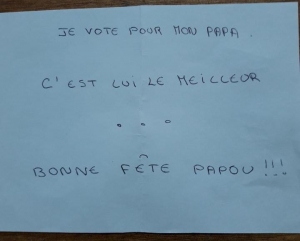 JE VOTE POUR MON PAPA.
C'EST LUI LE MEILLEUR
...
BONNE FÊTE PAPOU !!!